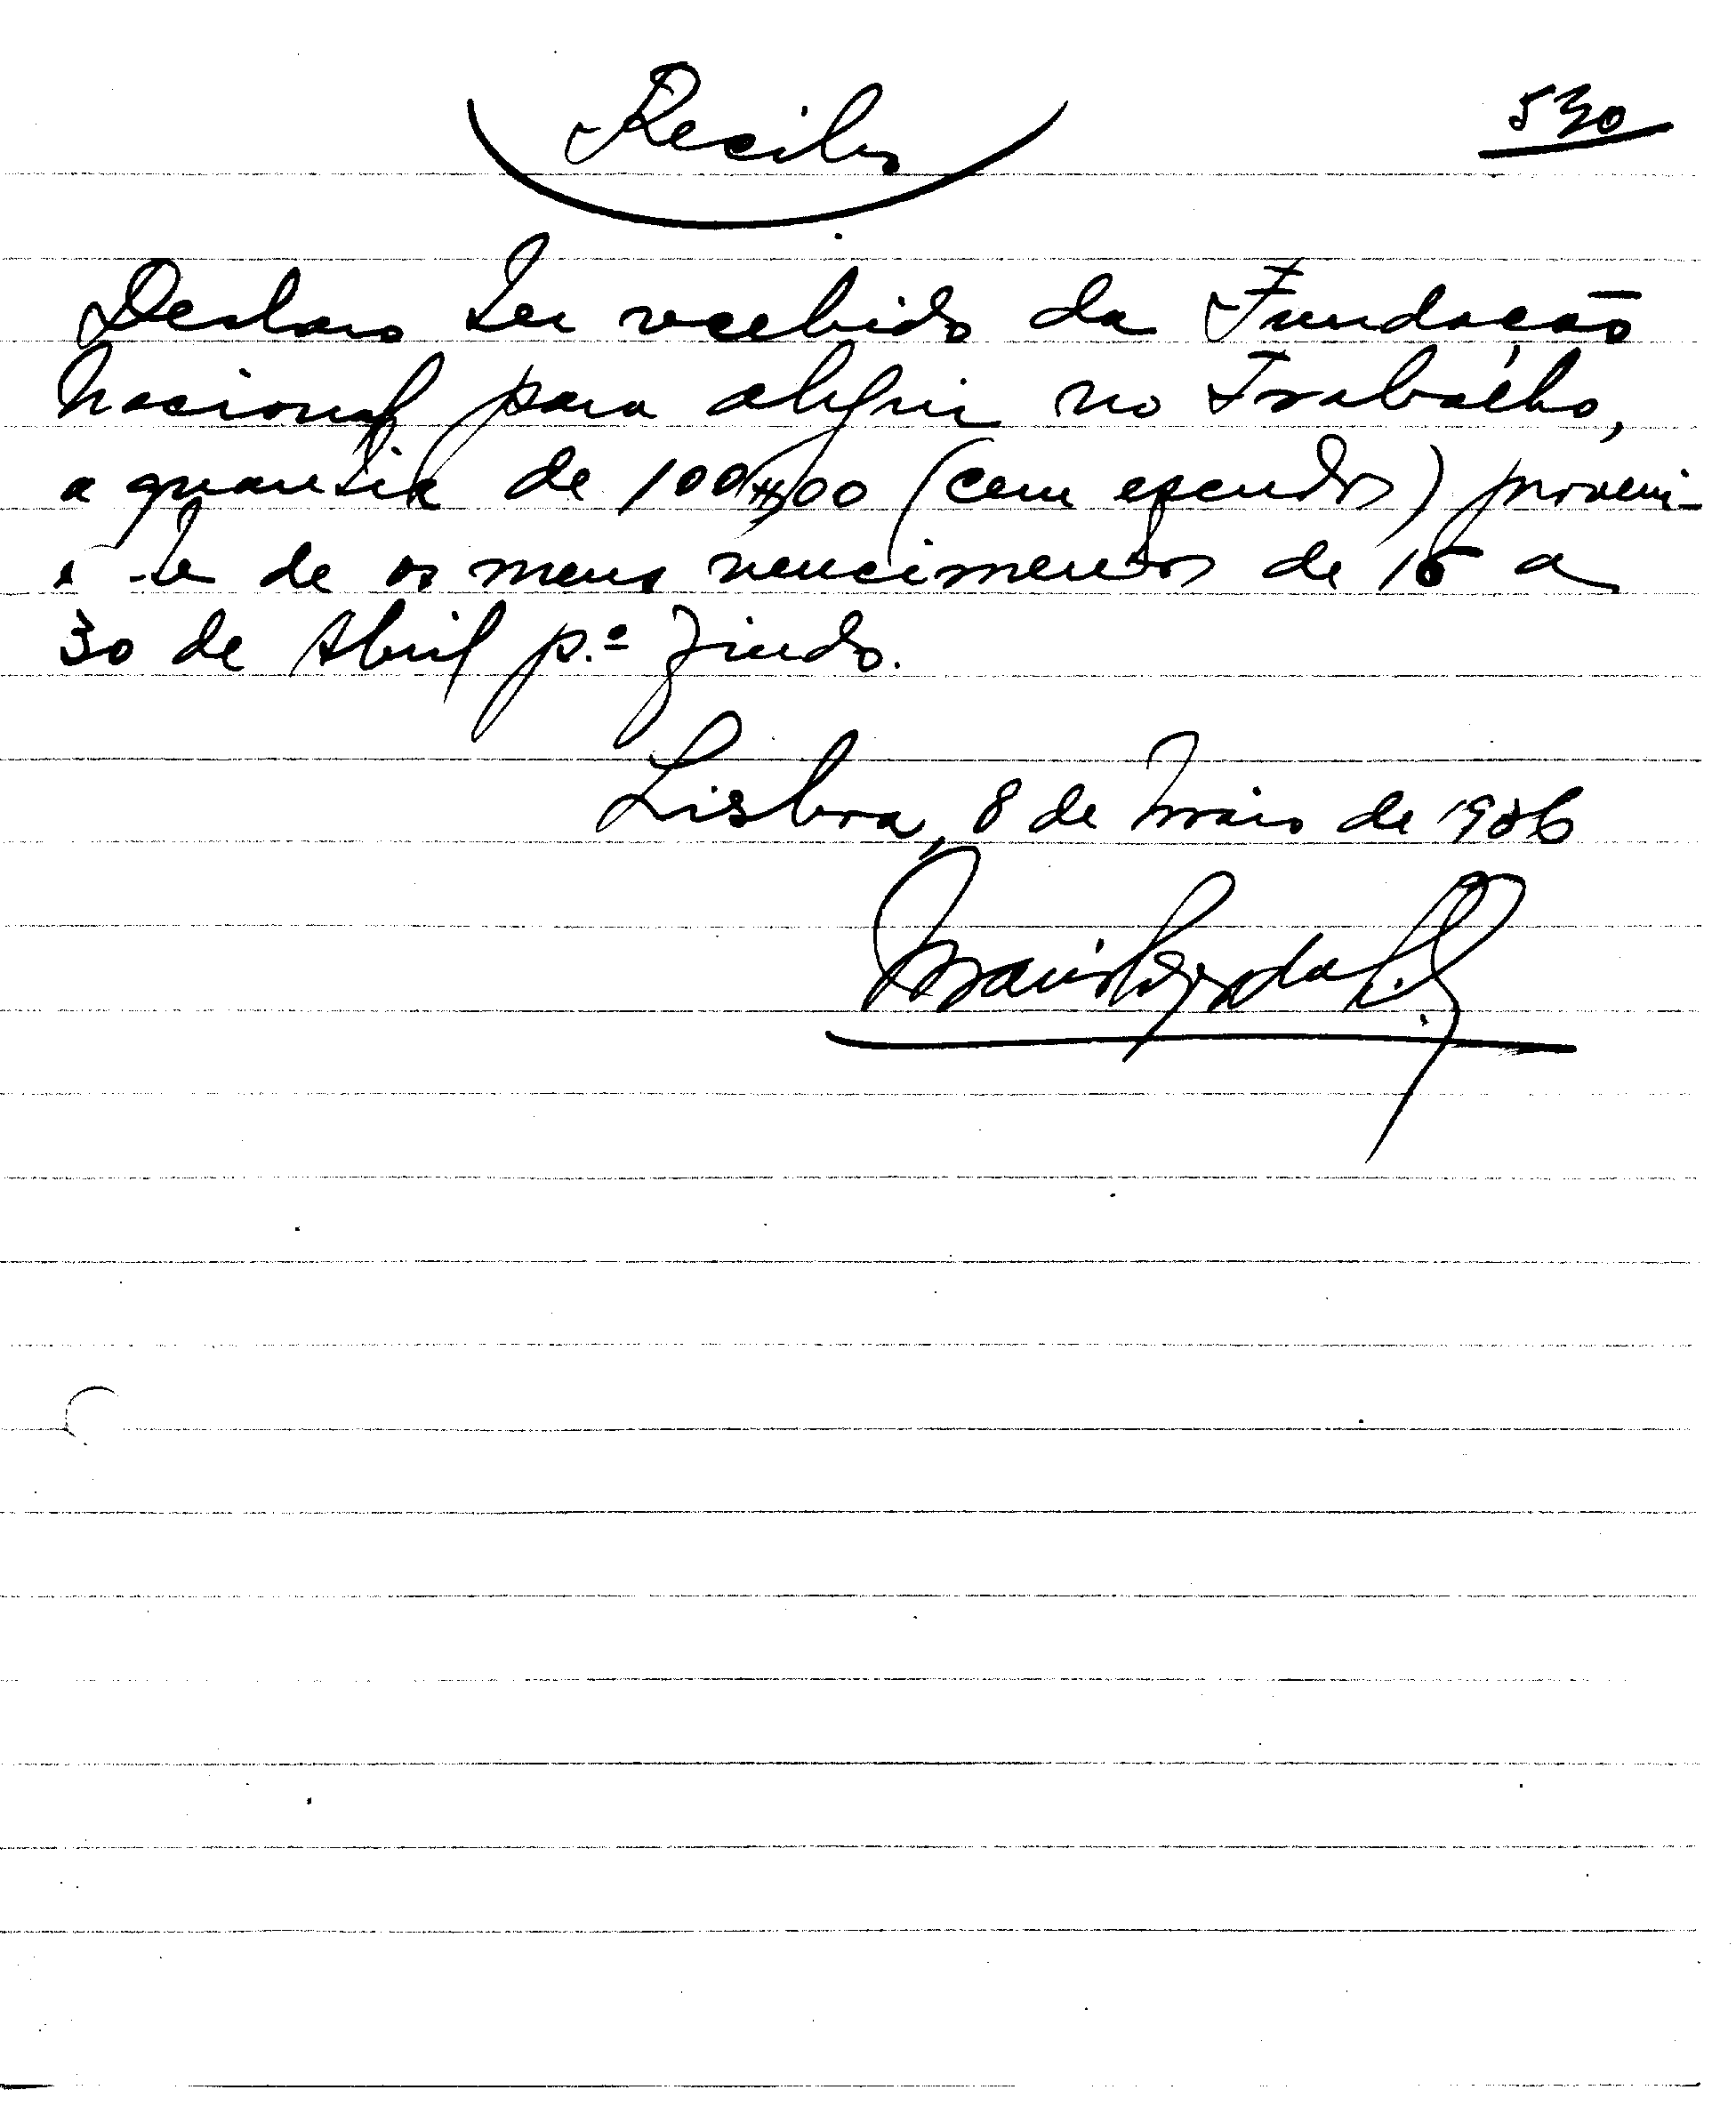 Recibo
530
Declaro ter recebido da Fundação
Nacional para alegria no Trabalho,
a quantia de 100$00 (cem escudos) proveni-
te de os meus vencimentos de 15 a
30 de Abril p.º findo.
Lisboa, 8 de Maio de 1936